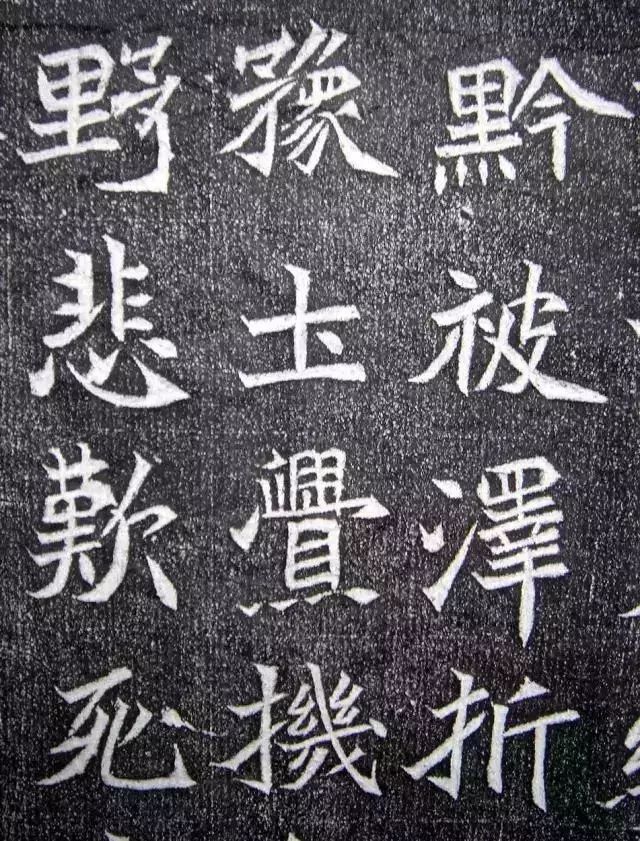 黔被澤折
豫圡舋機
野悲歎死